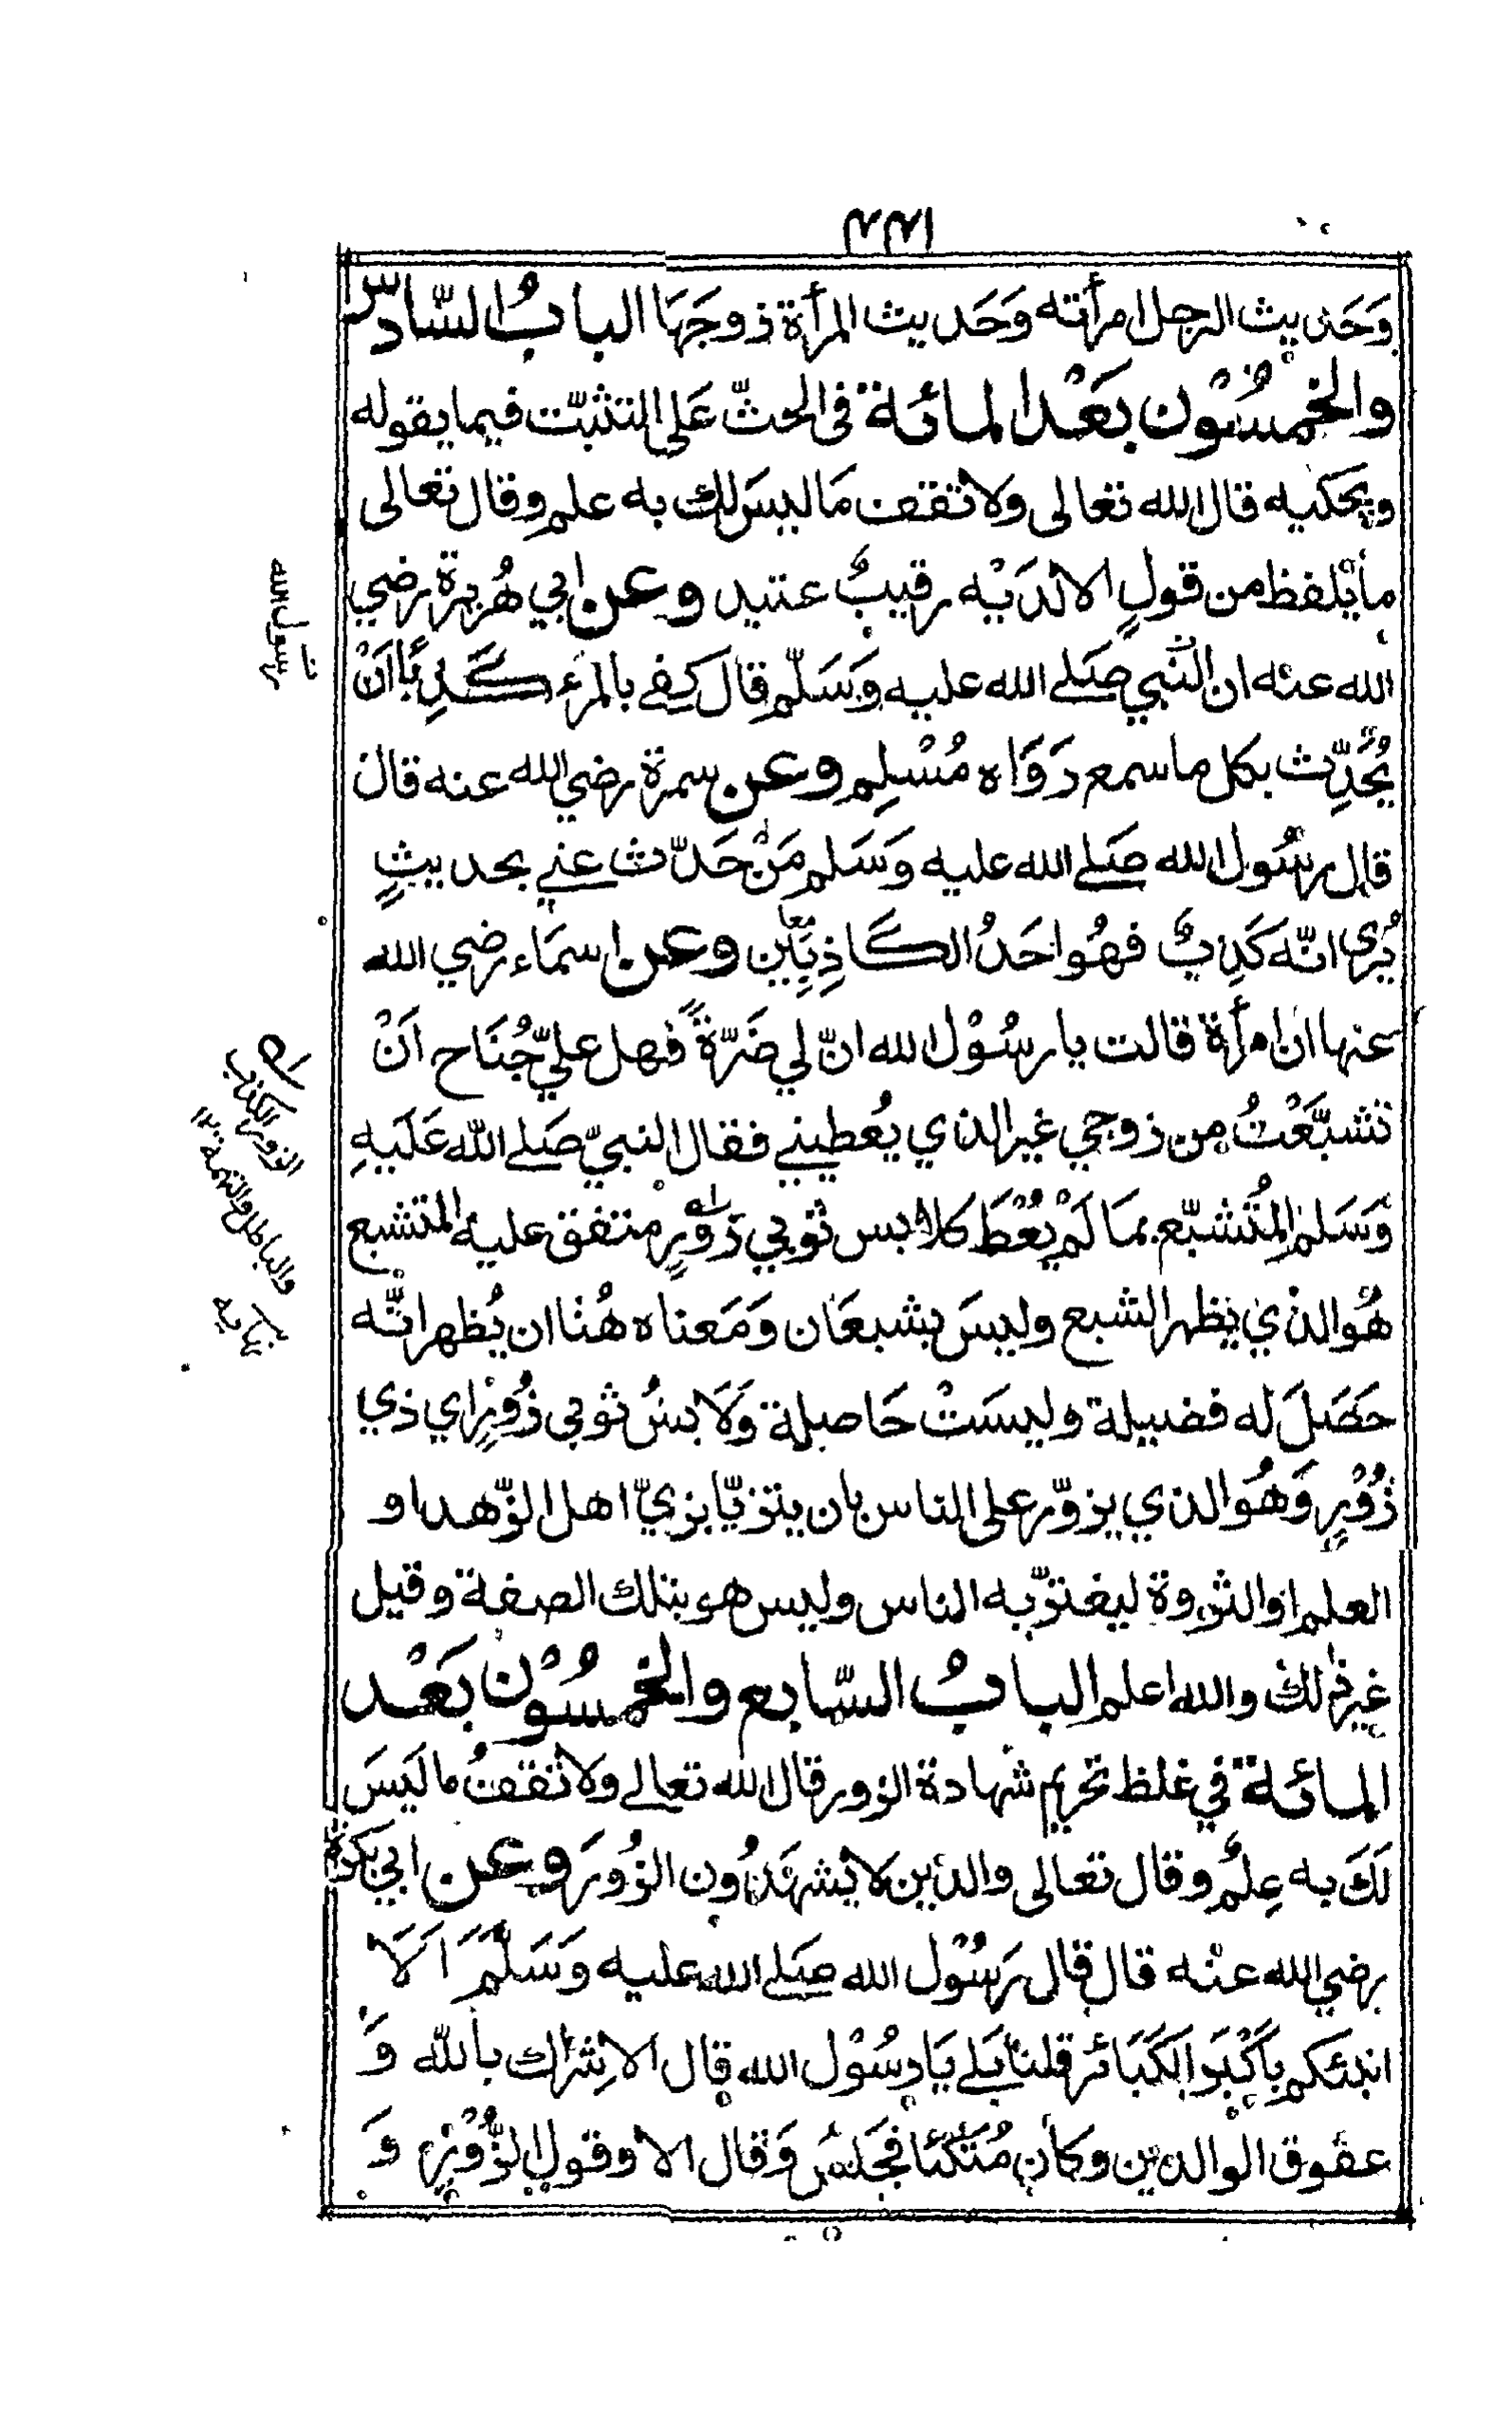 ٧٧١
وَحَديث الرجل امرأته وَحَديث المرأة زوجَهَا البابُ السَّادس
والخمسُوْن بَعْد المائة في الحثّ عَلى التثبّت فيما يقوله
ويحكيه قال الله تعالى ولا تقف مَا ليسَ لك به علم وقال تعالى
ما يَلفظ من قولٍ الا لدَيْه رقيبٌ عتيد وعن ابي هُريرة رضي
الله عنه ان النّبي صَلے الله عليه وَسَلّم قال كفے بالمرء كَذِبًا اَنْ
يُحَدِّث بكل ما سمع رَوَاه مُسْلِم وعن سمرة رضي الله عنه قال
قال رسُول الله صَلے الله عليه وَسَلم مَنْ حَدّث عنے بحديثٍ
يُرى انّه كَذِبٌ فهُو احَدُ الكَاذِبَِين وعن اسمَاء رضي الله
عنها ان امرأة قالت يا رسُوْل الله انّ لي ضَرّةً فهل عليّ جُنَاح اَنْ
تشبَّعْتُ من زوجي غير الذي يُعطينے فقال النبيّ صَلے الله عَلَيهِ
وَسَلم المُتَشبّع بمَا لَمْ يُعْطَ كلابس ثوبي زُوْرٍ متفق عليه المتشبع
هُو الذي يظهر الشبع وليسَ بشبعَان وَمَعناه هُنا ان يُظهر انّه
حَصَلَ له فضيلة وليسَتْ حَاصلة وَلَابسُ ثوبي زُوْرٍ اي ذي
زُوْرٍ وَهُو الذي يزوّر على الناس بان يتزيّا بزيّ اهل الزّهد او
العلم او الثروة ليغترّ به الناس وليس هو بتلك الصفة وقيل
غير ذلك والله اعلم البابُ السّابع والخمسُوْن بَعْد
المائة في غلظ تحريم شهادة الزور قال الله تعالے ولا تقفُ ما لَيسَ
لَكَ به عِلمٌ وقال تعالى والذين لا يَشهَدُون الزُورَ وعن ابي بكرة
رضي الله عنه قال قال رَسُوْل الله صَلے الله عليه وَسَلَّمَ اَلَا
انبئكم بِاَكْبَر الكَبَائر قلنا بَلے يَا رسُوْل الله قال الاِشرَاك بالله وَ
عقوق الوالدين وكان مُتّكئا فجَلسَ وَقال الا وقول الزُّوْرِ وَ
رسول الله
الزور الكذب
والباطل والتهمة ١٢
نهايه